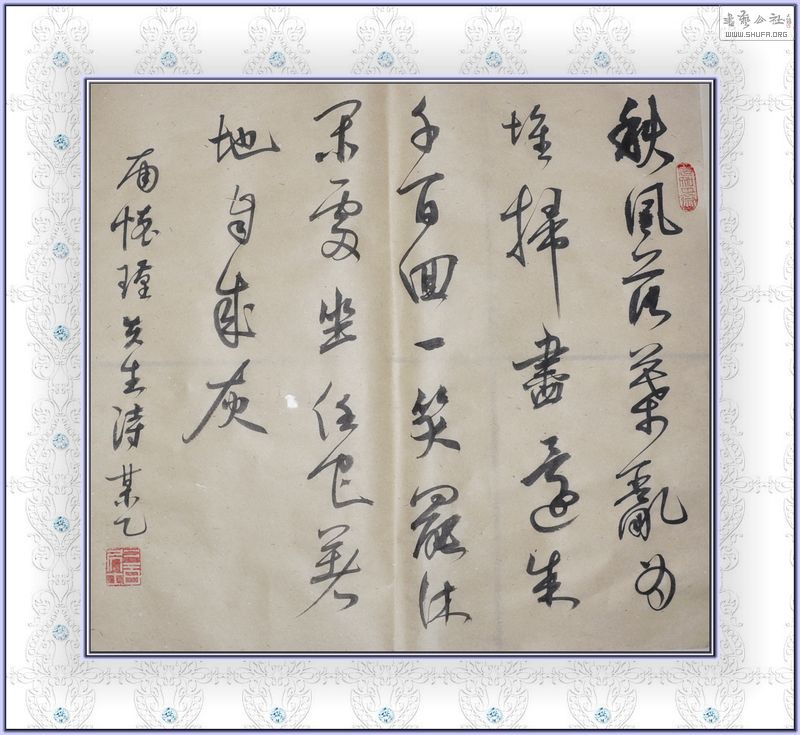 秋風落葉亂為
堆掃盡還來
千百回一笑罷休
閑處坐任它著
地自成灰
南懷瑾先生詩 某乙
書藝公社
WWW.SHUFA.ORG